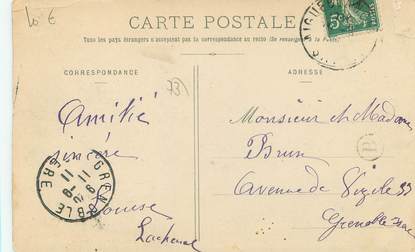 10 €
CARTE POSTALE
Tous les pays étrangers n'acceptent pas la correspondance au recto (Se renseigner à la Poste)
CORRESPONDANCE
ADRESSE
73
5c
AIGUE
Amitié
sincère
Louise
Lachenal
GRENOBLE
GRE
11
Monsieur et Madame
Brun
Avenue de Vizille 33
Grenoble Isère